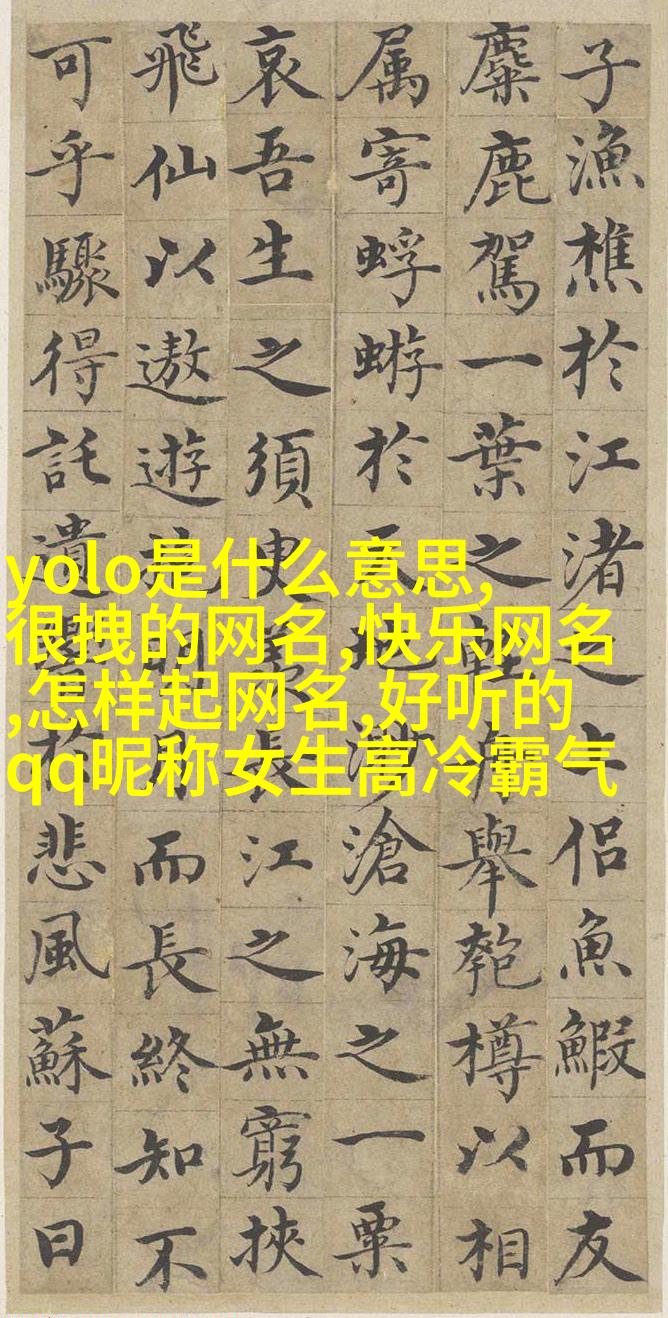 子漁樵於江渚之上侶魚鰕而友
麋鹿駕一葉之輕舟舉匏樽以相
属寄蜉蝣於天地渺滄海之一粟
哀吾生之須臾羨長江之無窮挾
飛仙以遨遊抱明月而長終知不
可乎驟得託遺響於悲風蘇子曰
yolo是什么意思,
很拽的网名,快乐网名
,怎样起网名,好听的
qq昵称女生高冷霸气